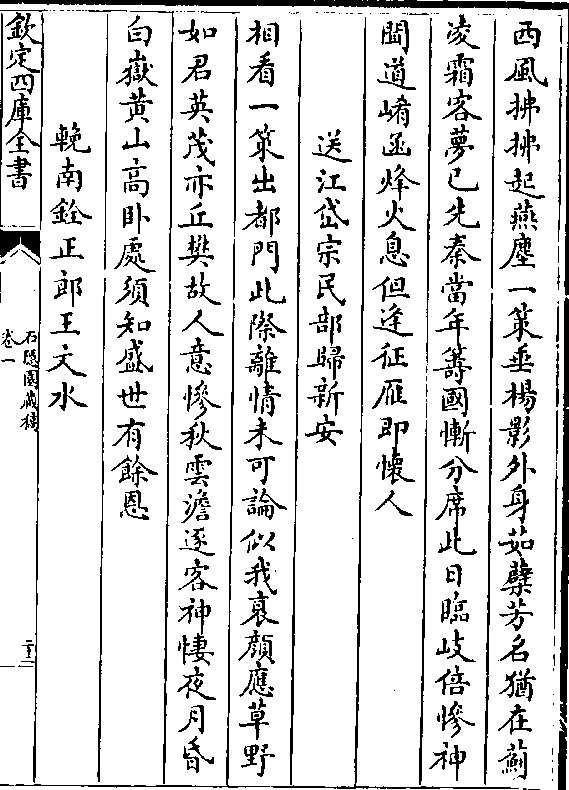 西風拂拂起燕塵一䇿垂楊影外身茹蘗芳名猶在薊
凌霜客夢已先秦當年籌國慚分席此日臨岐倍慘神
聞道崤函烽火息但逢征雁即懷人
送江岱宗民部歸新安
相看一䇿出都門此際離情未可論似我衰顔應草野
如君英茂亦丘樊故人意慘秋雲澹逐客神悽夜月昏
白嶽黄山高卧處須知盛世有餘恩
輓南銓正郎王文水
欽定四庫全書
石隱園藏稿
卷一